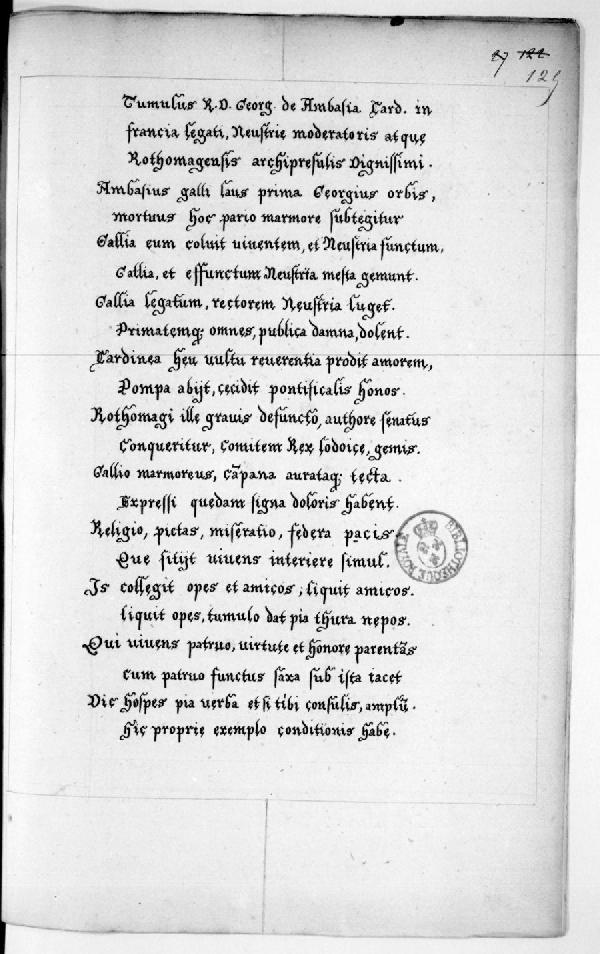 27 122
125
Tumulus R. D. Georg. de Ambasia Card. in
francia legati, Neustrie moderatoris atque
Rothomagensis archipresulis Dignissimi.
Ambasius galli laus prima Georgius orbis,
mortuus hoc pario marmore subtegitur
Gallia eum coluit uiuentem, et Neustria functum,
Gallia, et effunctum Neustria mesta gemunt.
Gallia legatum, rectorem Neustria luget.
Primatemq; omnes, publica damna, dolent.
Cardinea heu uultu reuerentia prodit amorem,
Pompa abijt, cecidit pontificalis honos.
Rothomagi ille grauis defunctō, authore senatus
Conqueritur, comitem Rex lodoice, gemis.
Gallio marmoreus, cāpana aurataq; tecta.
Expressi quedam signa doloris habent.
Religio, pietas, miseratio, federa pacis
Que sitijt uiuens interiere simul.
Is collegit opes et amicos; liquit amicos.
liquit opes, tumulo dat pia thura nepos.
Qui uiuens patruo, uirtute et honore parentās
cum patruo functus saxa sub ista iacet
Dic hospes pia uerba et si tibi consulis, amplū.
hic proprie exemplo conditionis habe.
BIBLIOTHEQUE ROYALE